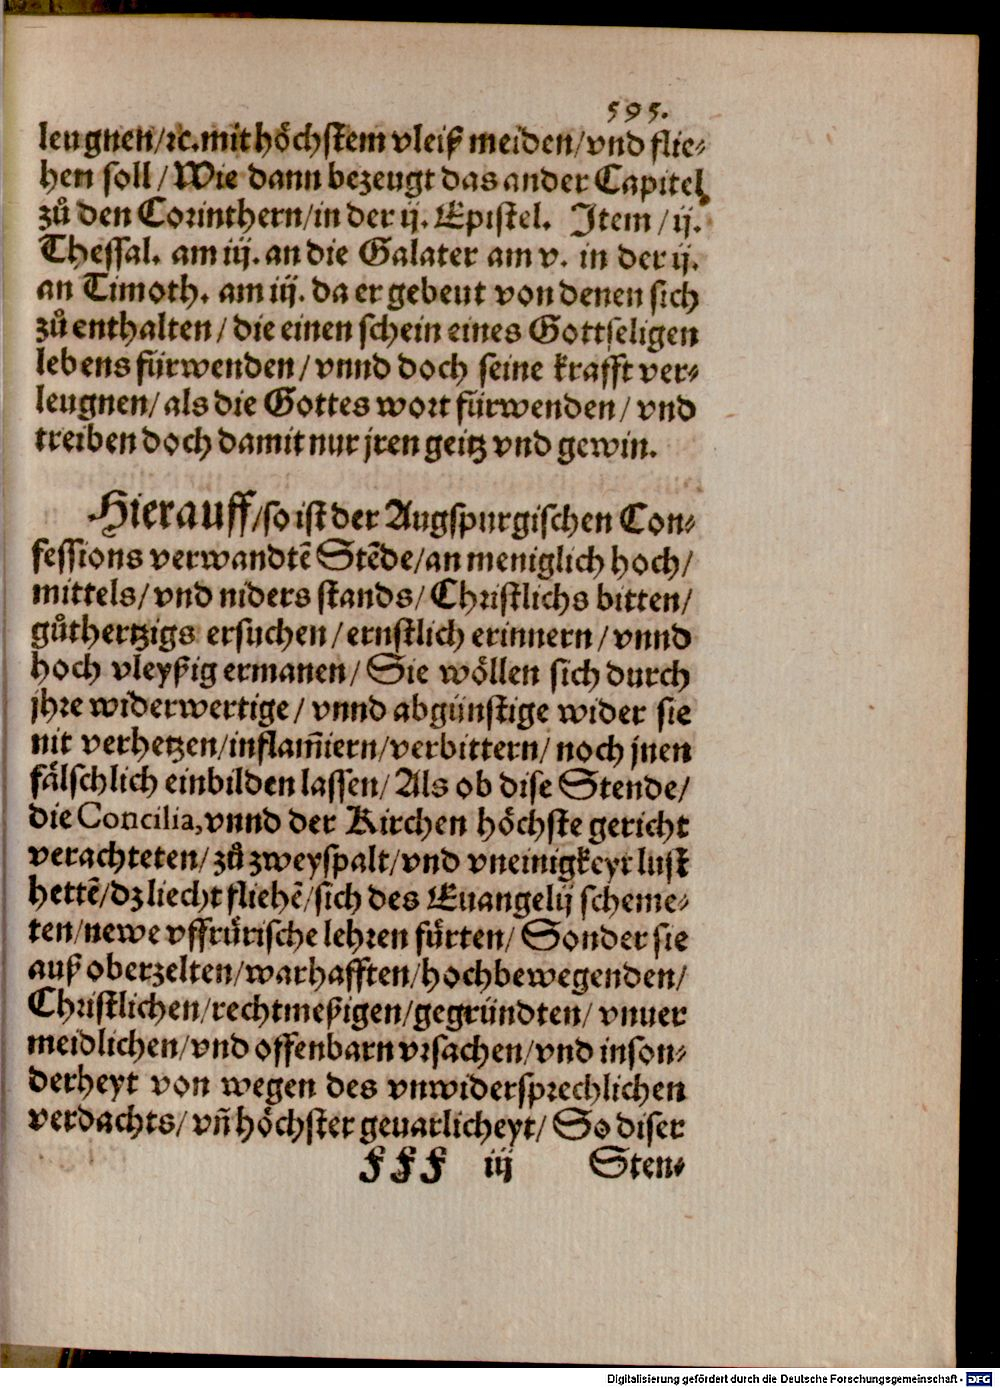 595.
leugnen/ꝛc. mit höchstem vleiß meiden/vnd flie⸗
hen soll/Wie dann bezeugt das ander Capitel
zů den Corinthern/in der ij. Epistel. Item/ij.
Thessal. am iij. an die Galater am v. in der ij.
an Timoth. am iij. da er gebeut von denen sich
zů enthalten/die einen schein eines Gottseligen
lebens fürwenden/vnnd doch seine krafft ver⸗
leugnen/als die Gottes wort fürwenden/vnd
treiben doch damit nur jren geitz vnd gewin.
Hierauff/so ist der Augspurgischen Con⸗
fessions verwandtē Stēde/an meniglich hoch/
mittels/vnd niders stands/Christlichs bitten/
gůthertzigs ersuchen/ernstlich erinnern/vnnd
hoch vleyßig ermanen/Sie wöllen sich durch
jhre widerwertige/vnnd abgünstige wider sie
nit verhetzen/inflam̄iern/verbittern/noch jnen
fälschlich einbilden lassen/Als ob dise Stende/
die Concilia, vnnd der Kirchen höchste gericht
verachteten/zů zweyspalt/vnd vneinigkeyt lust
hettē/dz liecht fliehē/sich des Euangelij scheme⸗
ten/newe vffrürische lehren fürten/Sonder sie
auß oberzelten/warhafften/hochbewegenden/
Christlichen/rechtmeßigen/gegründten/vnuer
meidlichen/vnd offenbarn vrsachen/vnd inson⸗
derheyt von wegen des vnwidersprechlichen
verdachts/vn̄ höchster geuarlicheyt/So diser
fff iij Sten⸗
Digitalisierung gefördert durch die Deutsche Forschungsgemeinschaft - DFG